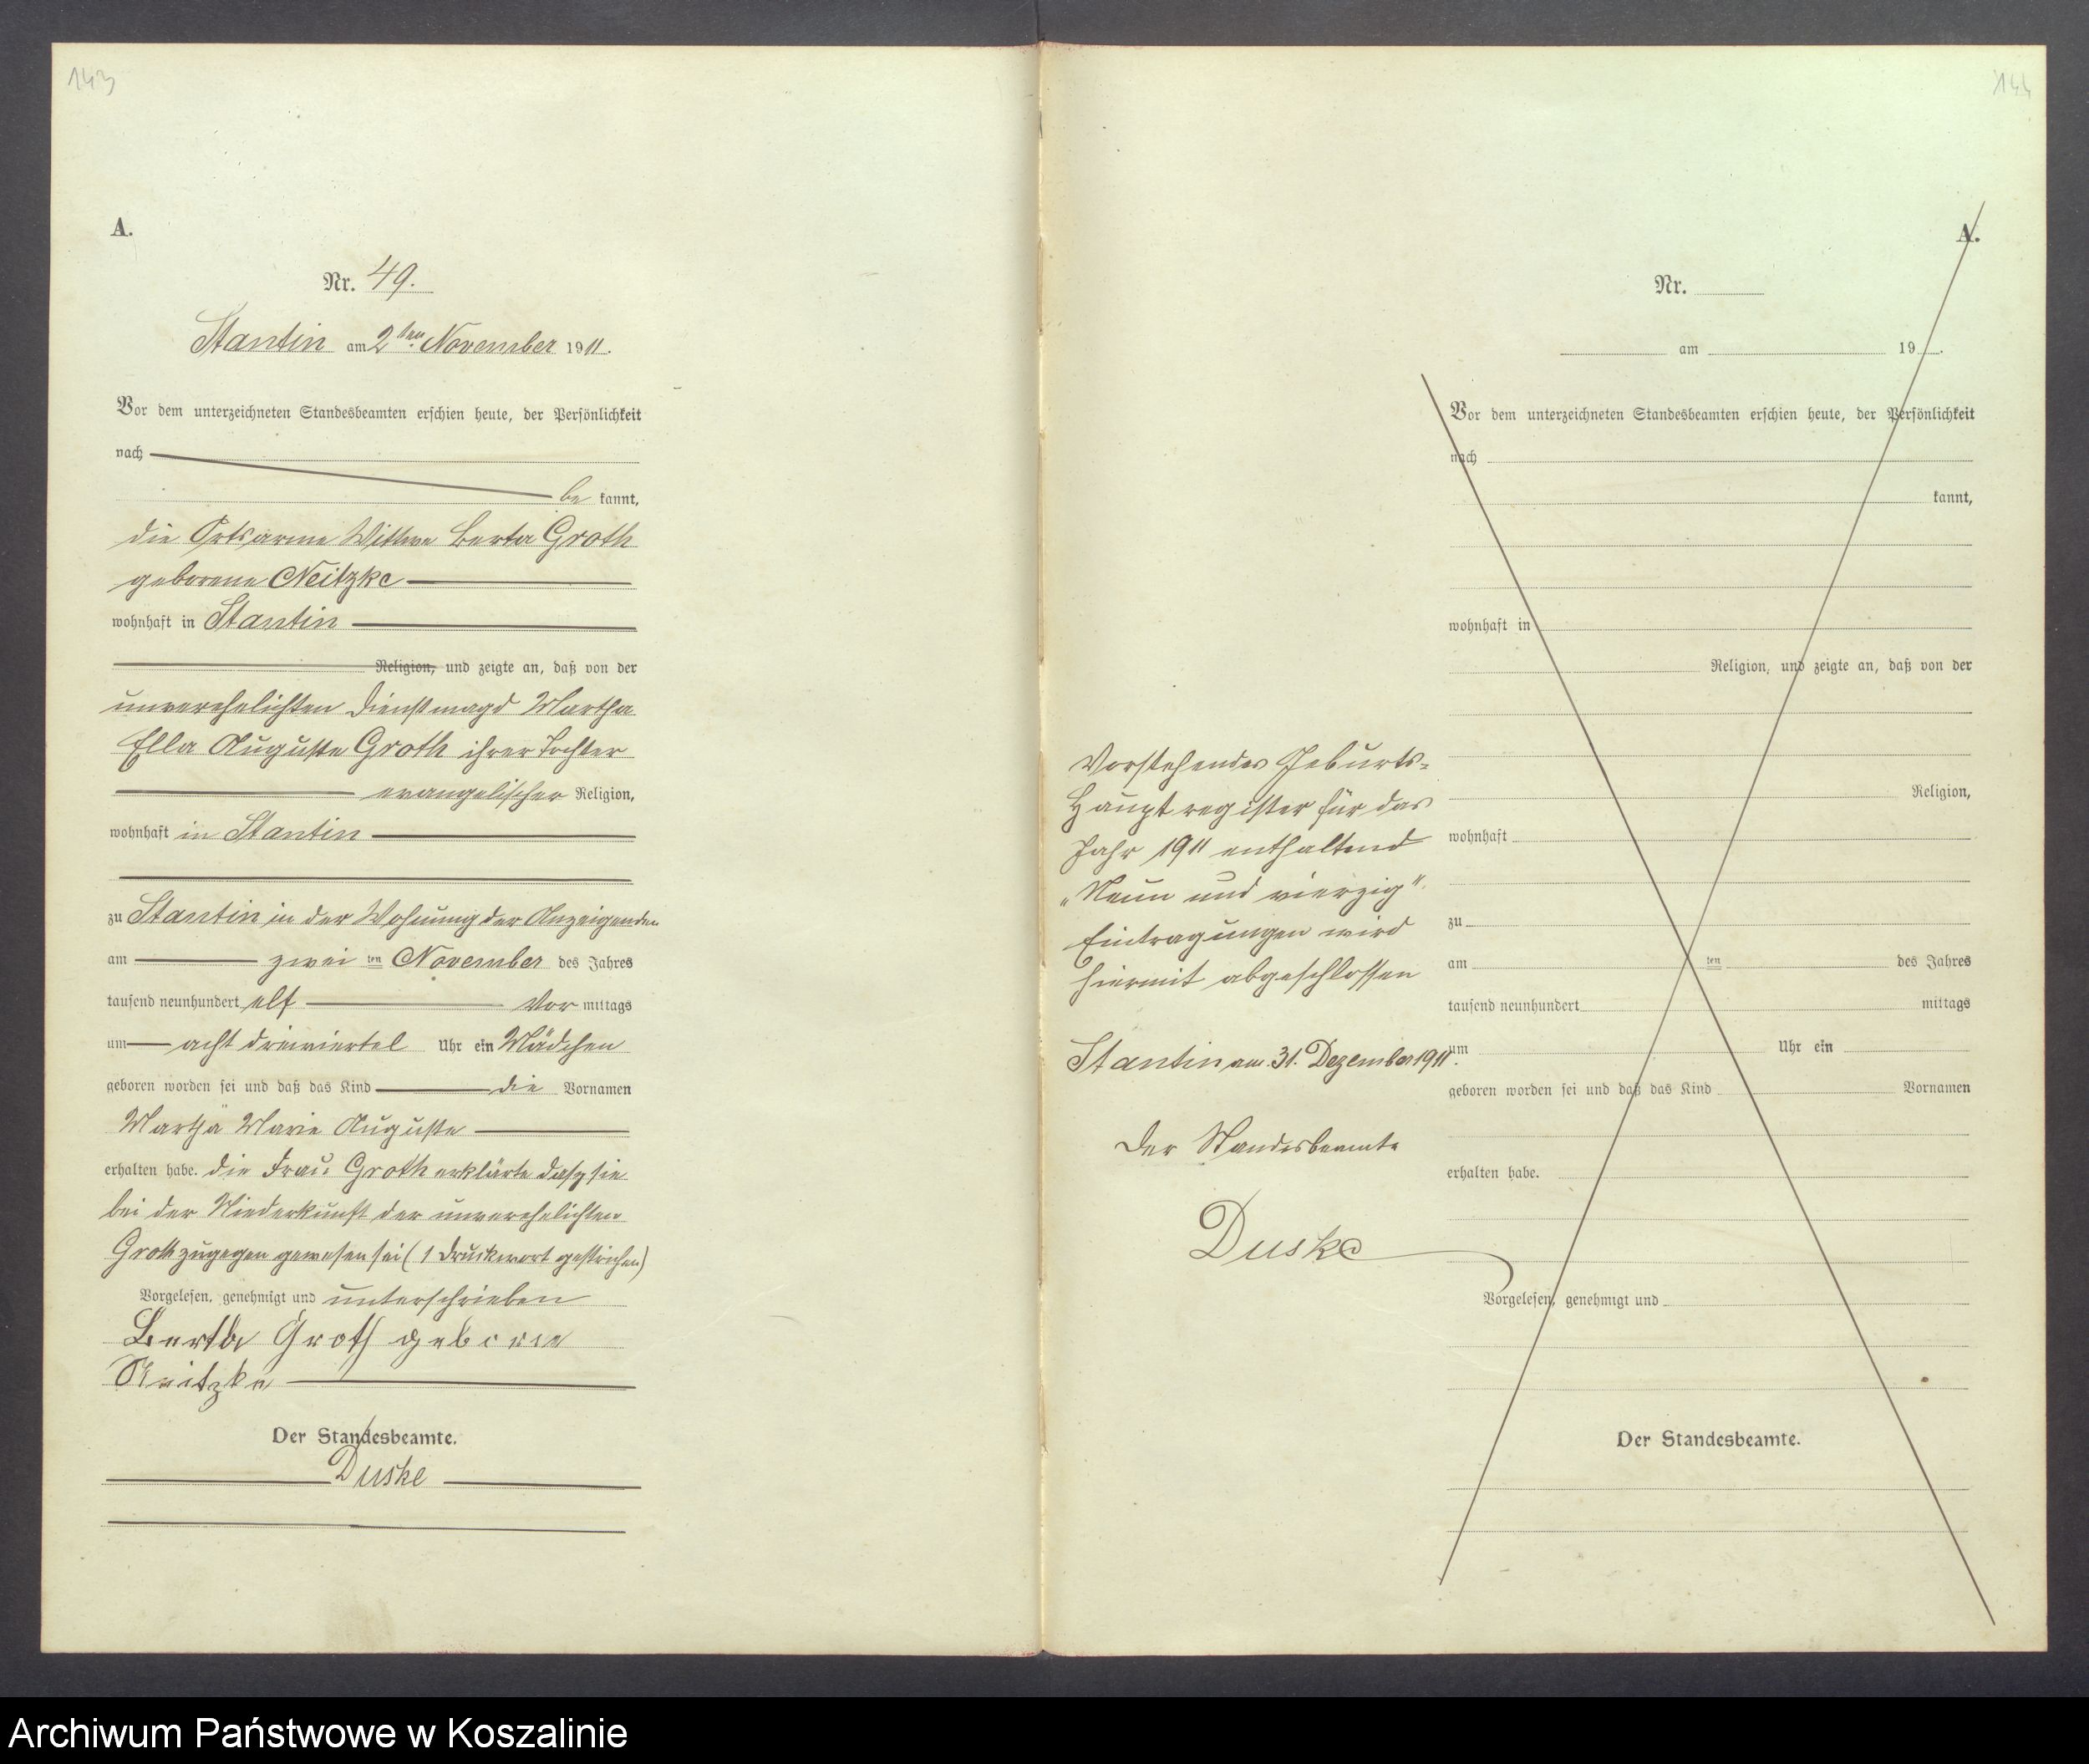 143
A.
Nr. 49.
Stantin am 2ten November 1911.
Vor dem unterzeichneten Standesbeamten erschien heute, der Persönlichkeit
nach
be kannt,
die Ortsarme Wittwe Berta Groth
geborene Neitzke
wohnhaft in Stantin
Religion, und zeigte an, daß von der
unverehelichten Dienstmagd Martha
Ella Auguste Groth ihrer Tochter
evangelischer Religion,
wohnhaft in Stantin
zu Stantin in der Wohnung der Anzeigenden
am zwei ten November des Jahres
tausend neunhundert elf Vor mittags
um acht dreiviertel Uhr ein Mädchen
geboren worden sei und daß das Kind die Vornamen
Martha Marie Auguste
erhalten habe. die Frau Groth erklärte dasz sie
bei der Niederkunft der unverehelichten
Groth zugegen gewesen sei (1 Druckwort gestrichen)
Vorgelesen, genehmigt und unterschrieben
Berta Groth geborne
Neitzke
Der Standesbeamte.
Duske
144
A.
Nr.
am 19 .
Vor dem unterzeichneten Standesbeamten erschien heute, der Persönlichkeit
nach
kannt,
wohnhaft in
Religion, und zeigte an, daß von der
Religion,
wohnhaft
zu
am ten des Jahres
tausend neunhundert mittags
um Uhr ein
geboren worden sei und daß das Kind Vornamen
erhalten habe.
Vorgelesen, genehmigt und
Der Standesbeamte.
Vorstehendes Geburts-
Hauptregister für das
Jahr 1911 enthaltend
„Neun und vierzig"
Eintragungen wird
hiermit abgeschlossen
Stantin am 31. Dezember 1911.
Der Standesbeamte
Duske
Archiwum Państwowe w Koszalinie